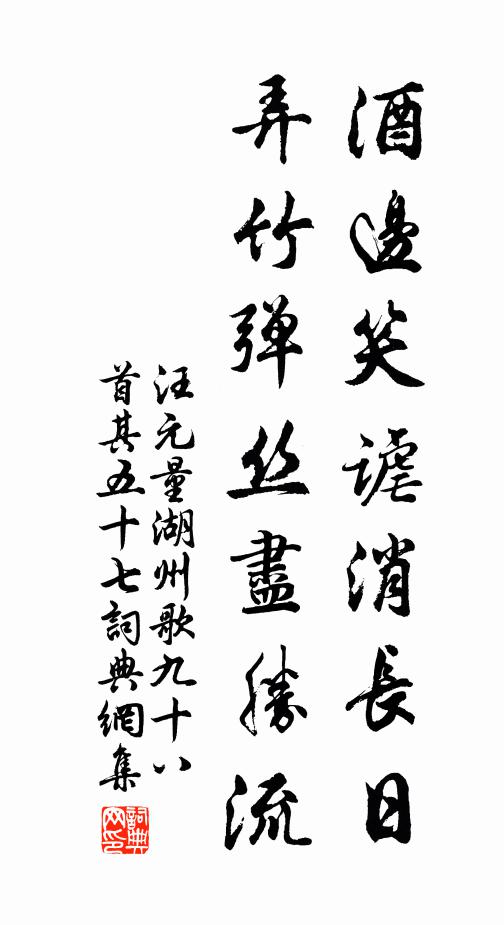 酒邊笑謔消長日
弄竹弹丝盡勝流
汪元量湖州歌九十八
首其五十七詞典網集
詞典
网印